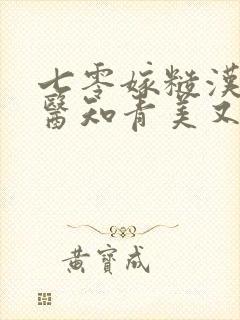 七零嫁糙漢
醫知青美又
黃寶成